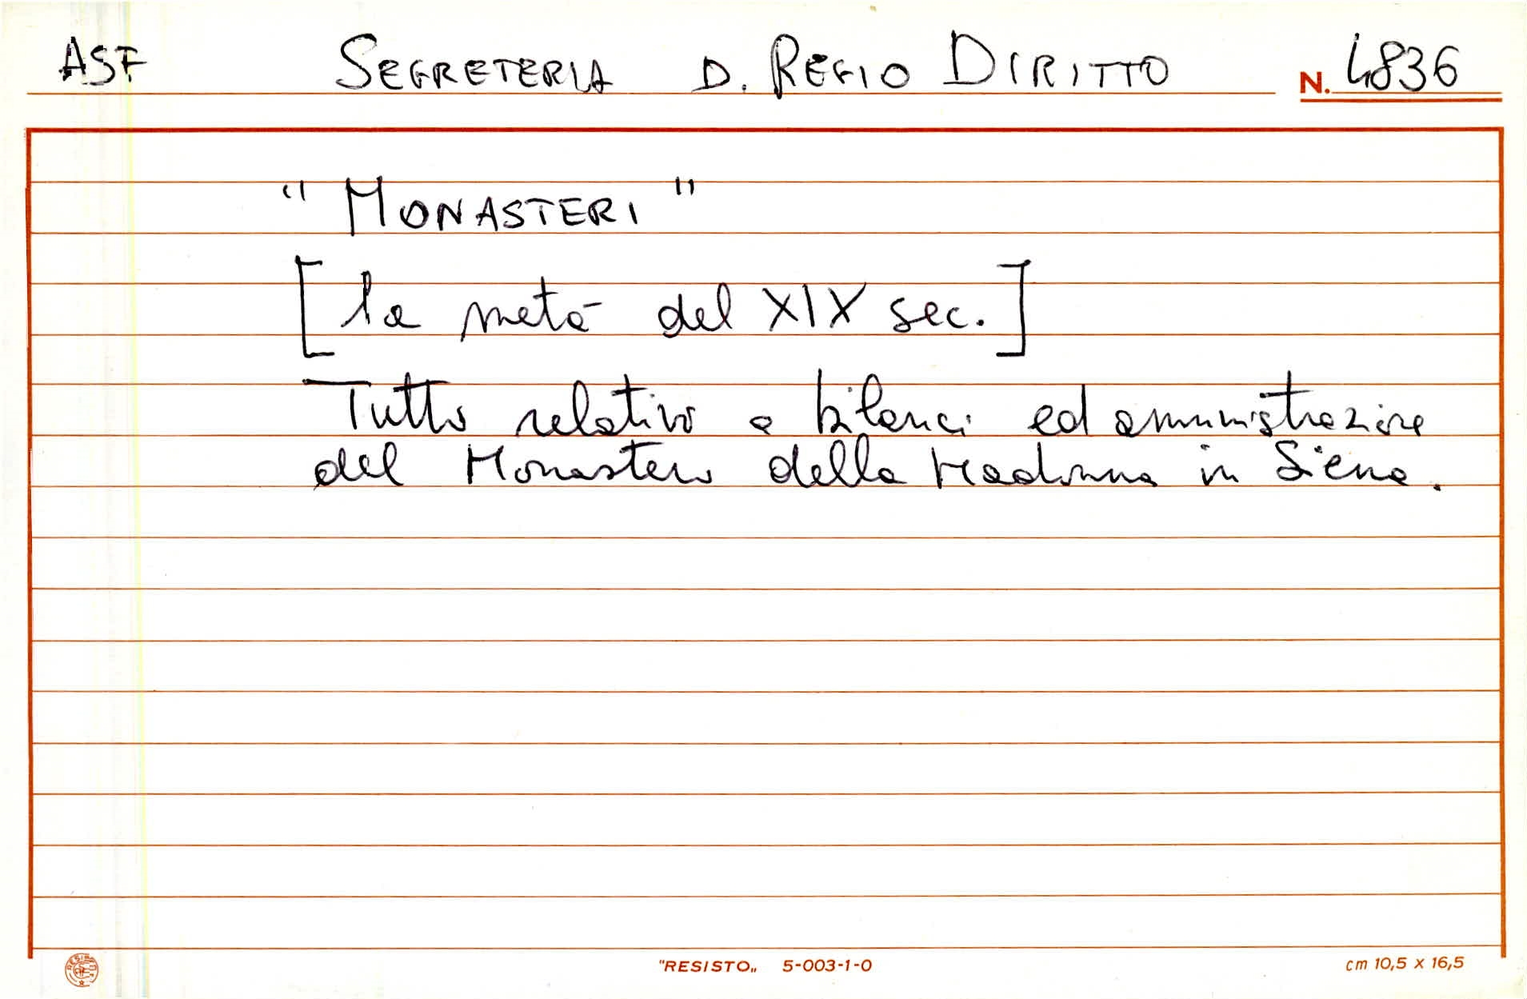 ASF SEGRETERIA D. REGIO DIRITTO N. 4836
"MONASTERI"
[1a metà del XIX sec.]
Tutto relativo a bilanci ed amministrazione
del Monastero della Madonna in Siena.
"RESISTO„ 5-003-1-0 cm 10,5 x 16,5